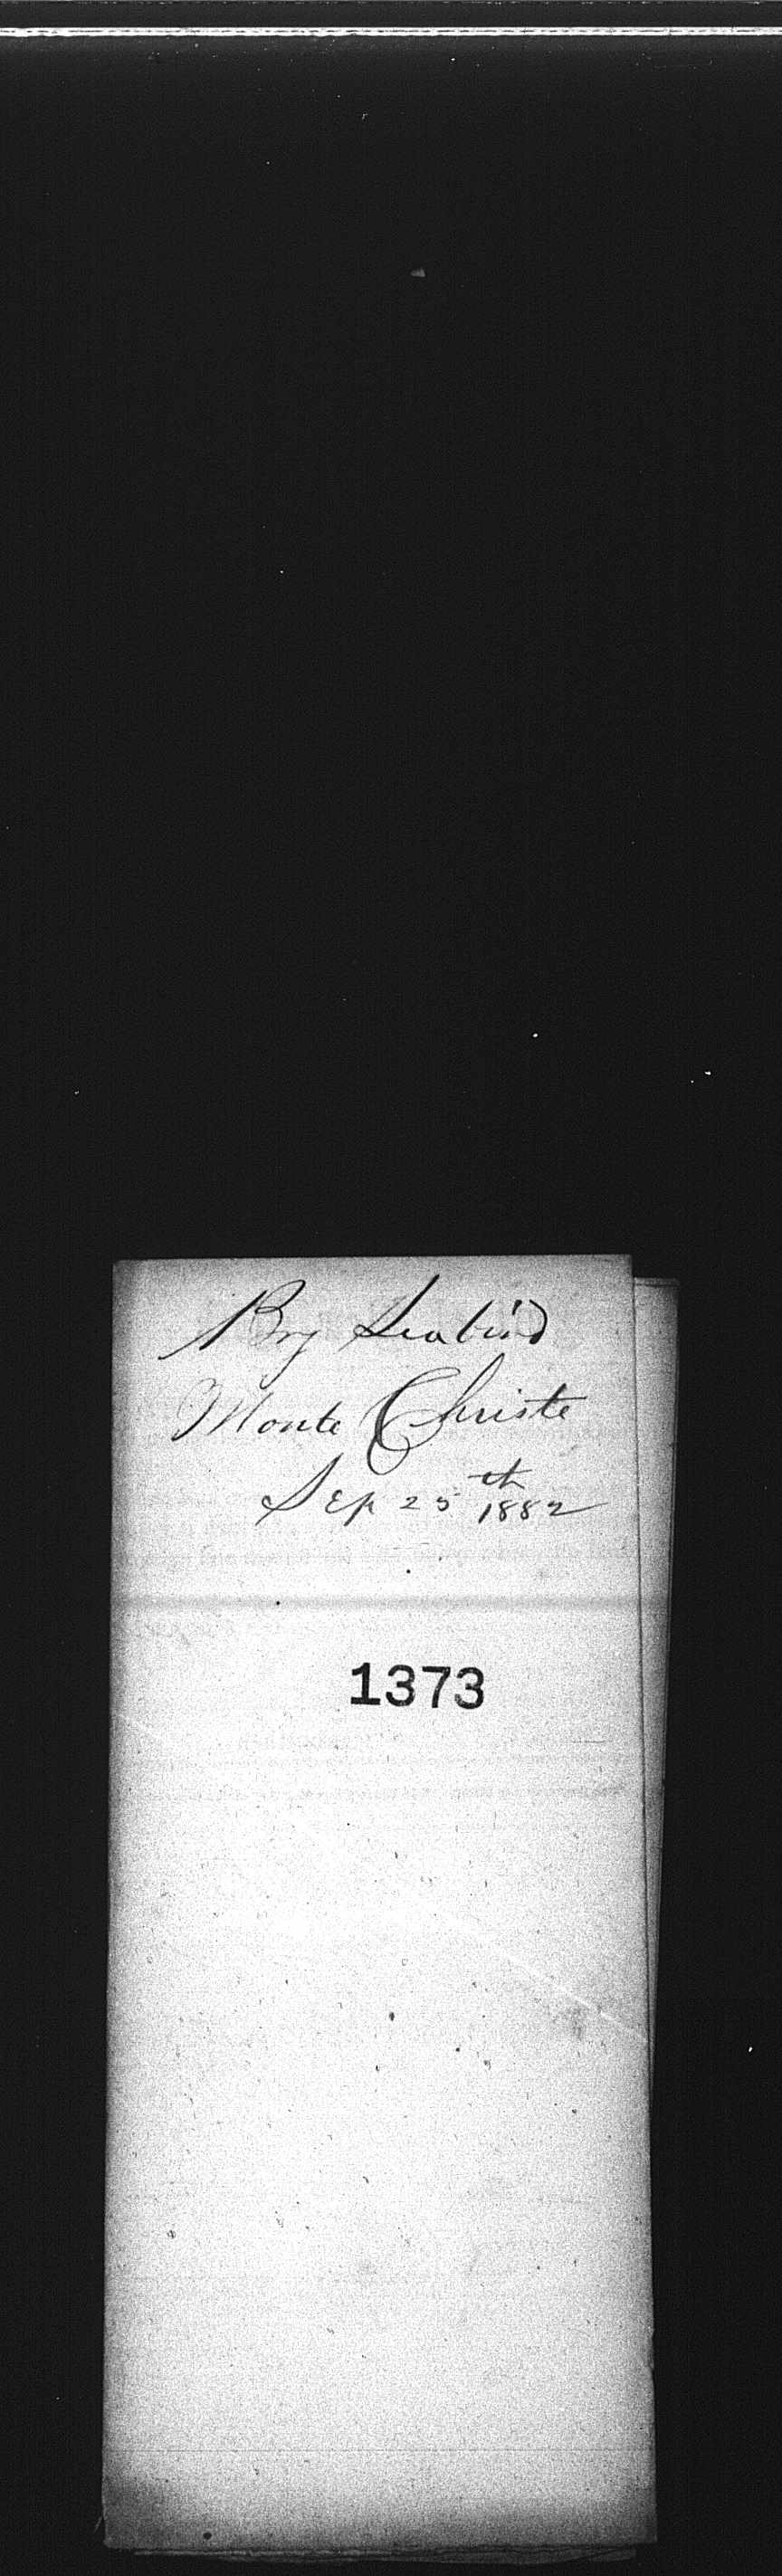 Brg Seabird
Monte Christe
Sep 25th 1882
1373